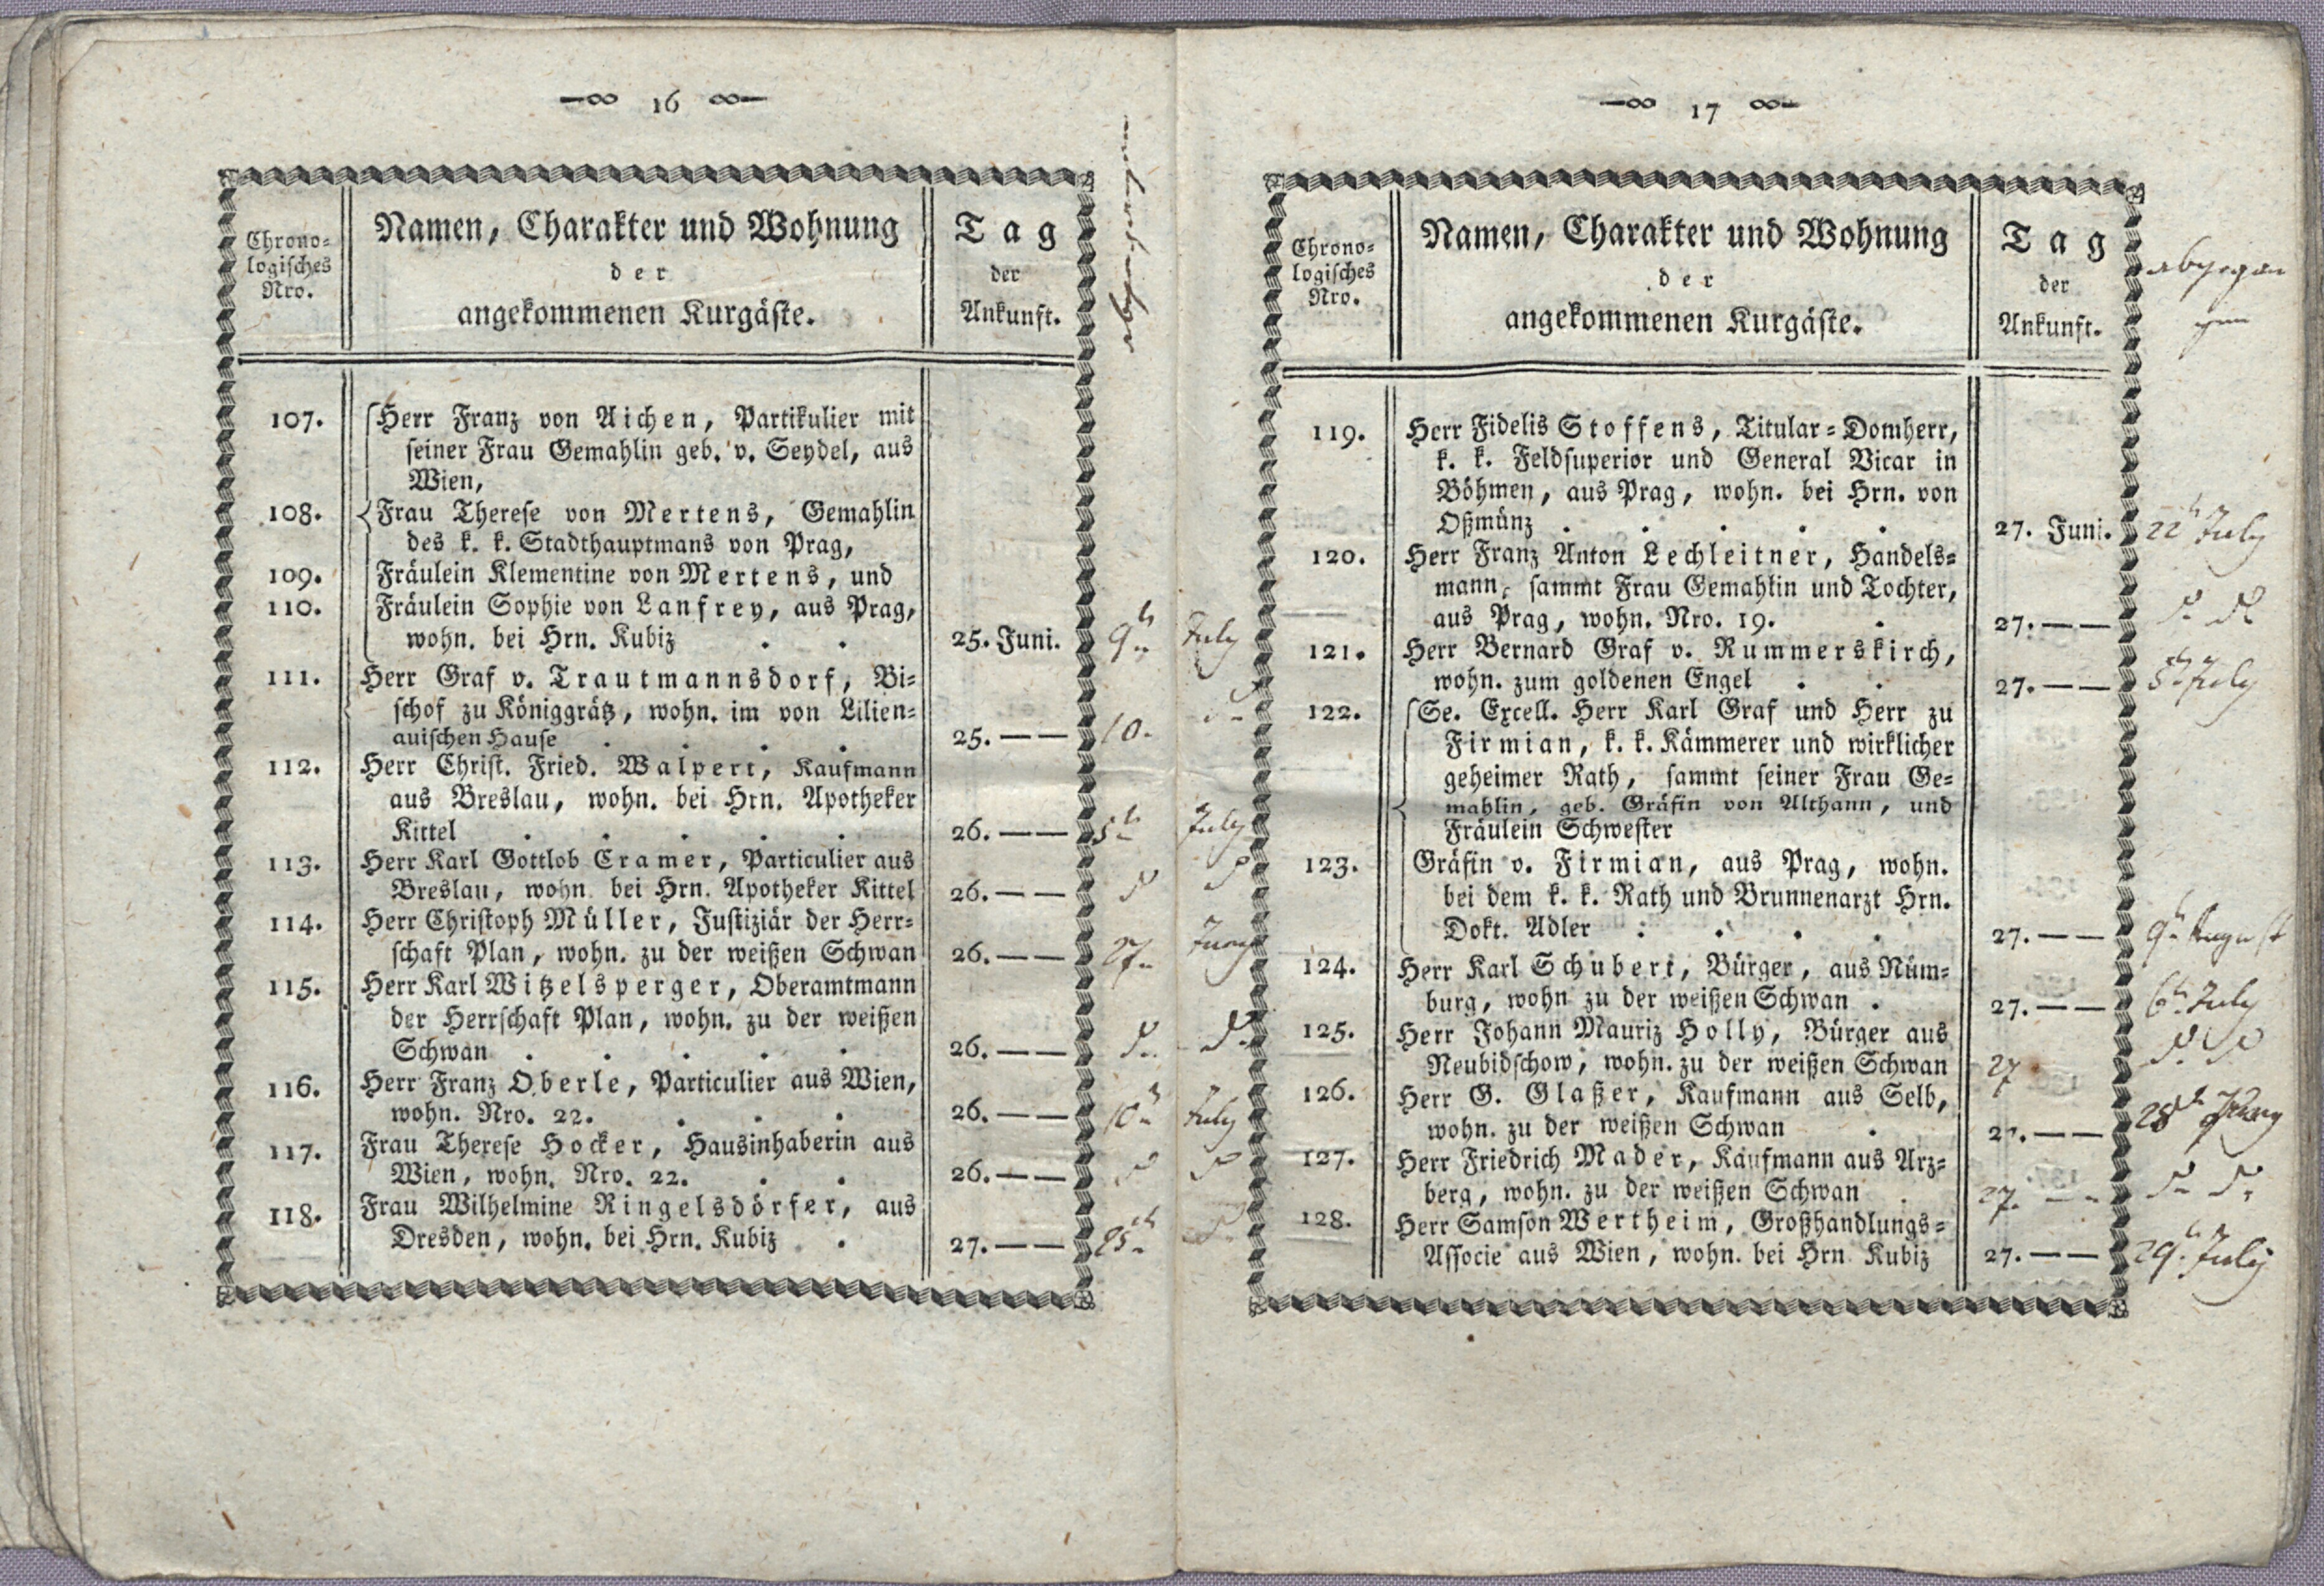 16
Chrono-
logisches
Nro.
Namen, Charakter und Wohnung
der
angekommenen Kurgäste.
Tag
der
Ankunft.
abgegangen
107. Herr Franz von Aichen, Partikulier mit
seiner Frau Gemahlin geb. v. Seydel, aus
Wien,
108. Frau Therese von Mertens, Gemahlin
des k. k. Stadthauptmans von Prag,
109. Fräulein Klementine von Mertens, und
110. Fräulein Sophie von Lanfrey, aus Prag,
wohn. bei Hrn. Kubiz . . 25. Juni. 9th July
111. Herr Graf v. Trautmannsdorf, Bi-
schof zu Königgrätz, wohn. im von Lilien-
auischen Hause . . . . 25. — — 10. d
112. Herr Christ. Fried. Walpert, Kaufmann
aus Breslau, wohn. bei Hrn. Apotheker
Kittel . . . . . 26. — — 5th July
113. Herr Karl Gottlob Cramer, Particulier aus
Breslau, wohn. bei Hrn. Apotheker Kittel 26. — — d d
114. Herr Christoph Müller, Justiziär der Herr-
schaft Plan, wohn. zu der weißen Schwan 26. — — 27. Juny
115. Herr Karl Witzelsperger, Oberamtmann
der Herrschaft Plan, wohn. zu der weißen
Schwan . . . . . 26. — — d. d.
116. Herr Franz Oberle, Particulier aus Wien,
wohn. Nro. 22. . . . 26. — — 10th July
117. Frau Therese Hocker, Hausinhaberin aus
Wien, wohn. Nro. 22. . . 26. — — d d
118. Frau Wilhelmine Ringelsdörfer, aus
Dresden, wohn. bei Hrn. Kubiz . 27. — — 25th d.
17
Chrono-
logisches
Nro.
Namen, Charakter und Wohnung
der
angekommenen Kurgäste.
Tag
der
Ankunft.
abgegan
gen
119. Herr Fidelis Stoffens, Titular-Domherr,
k. k. Feldsuperior und General Vicar in
Böhmen, aus Prag, wohn. bei Hrn. von
Oßmünz . . . . . 27. Juni. 22th July
120. Herr Franz Anton Lechleitner, Handels-
mann, sammt Frau Gemahlin und Tochter,
aus Prag, wohn. Nro. 19. . 27. — — d. d.
121. Herr Bernard Graf v. Rummerskirch,
wohn. zum goldenen Engel . . 27. — — 5th July
122. Se. Excell. Herr Karl Graf und Herr zu
Firmian, k. k. Kämmerer und wirklicher
geheimer Rath, sammt seiner Frau Ge-
mahlin, geb. Gräfin von Althann, und
Fräulein Schwester
123. Gräfin v. Firmian, aus Prag, wohn.
bei dem k. k. Rath und Brunnenarzt Hrn.
Dokt. Adler . . . . 27. — — 9th August
124. Herr Karl Schubert, Bürger, aus Nüm-
burg, wohn zu der weißen Schwan . 27. — — 6th July
125. Herr Johann Mauriz Holly, Bürger aus
Neubidschow, wohn. zu der weißen Schwan 27 d. d
126. Herr G. Glaßer, Kaufmann aus Selb,
wohn. zu der weißen Schwan . 27. — — 28th Juny
127. Herr Friedrich Mader, Kaufmann aus Arz-
berg, wohn. zu der weißen Schwan . 27. — — d. d.
128. Herr Samson Wertheim, Großhandlungs-
Associe aus Wien, wohn. bei Hrn Kubiz 27. — — 29th July